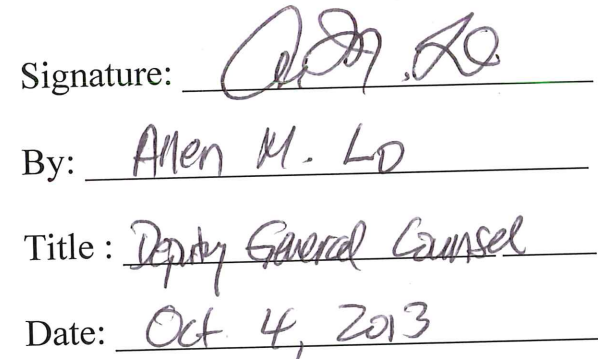 Signature:
By: Allen M. Lo
Title : Deputy General Counsel
Date: Oct 4, 2013